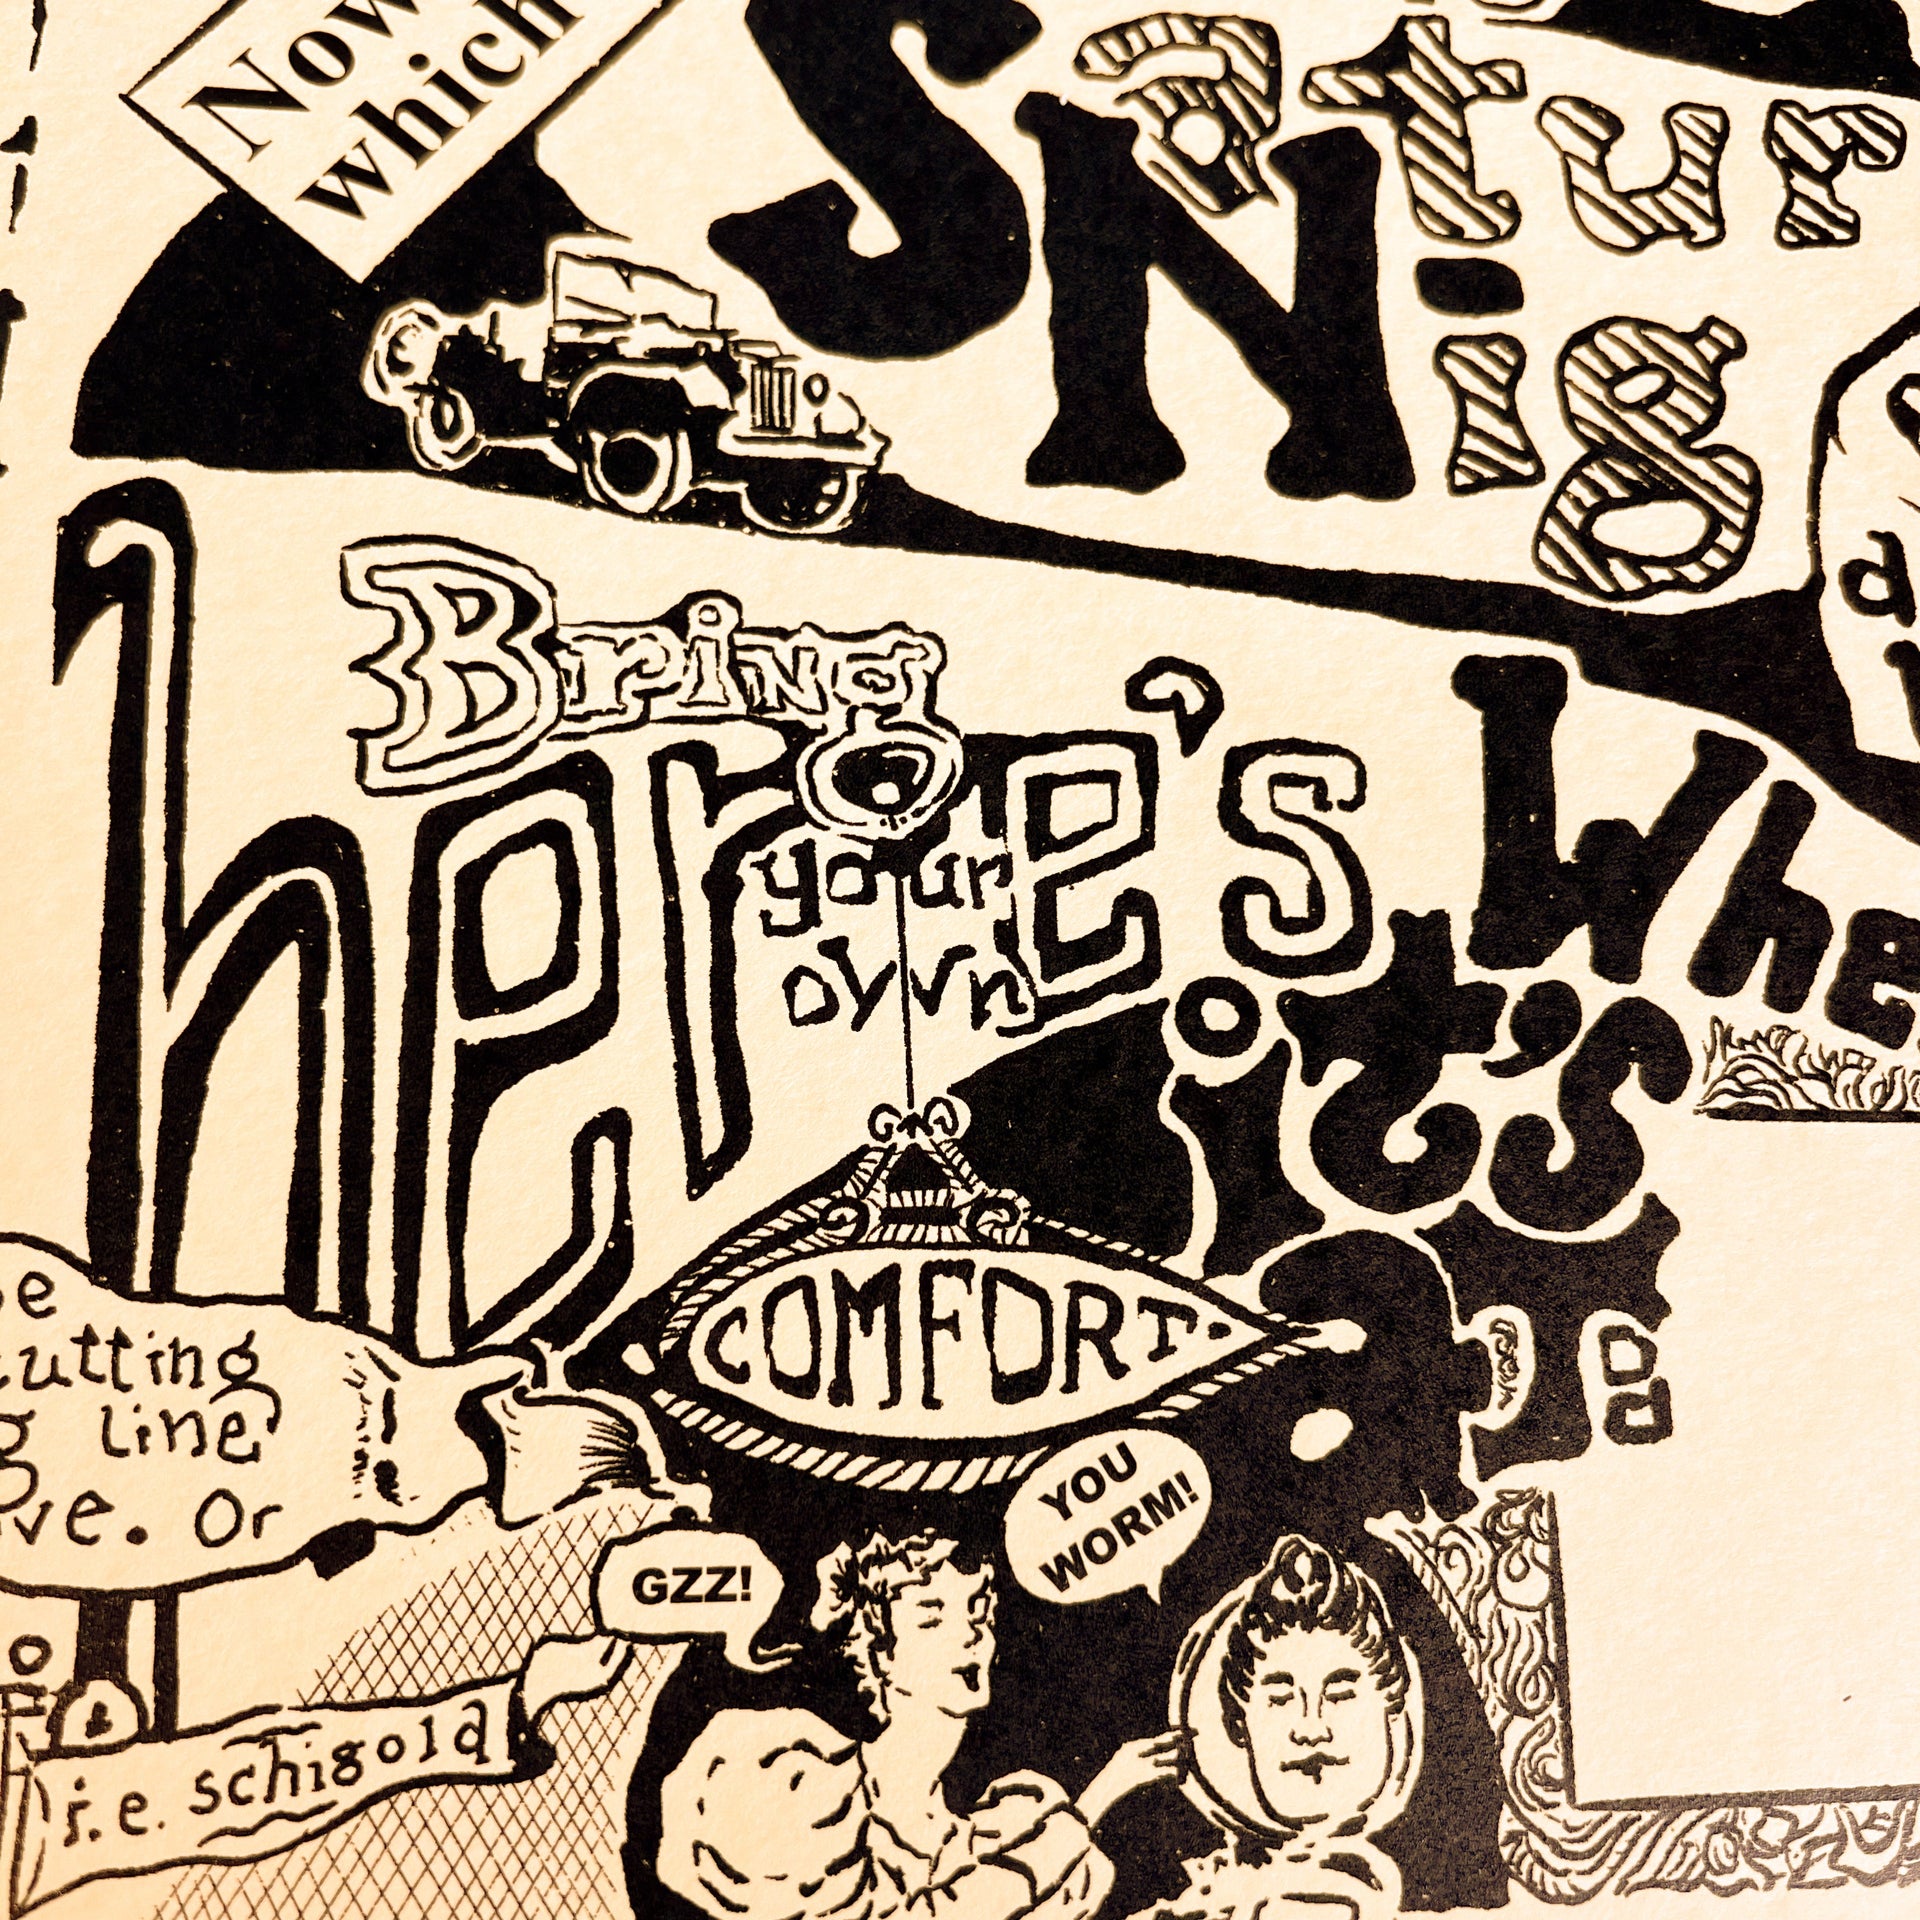 Now
which
Satur
Nig
Bring
here's Whe
your
own
it's
COMFORT.
e
cutting
g line
ve. Or
YOU
WORM!
GZZ!
j.e. schigold